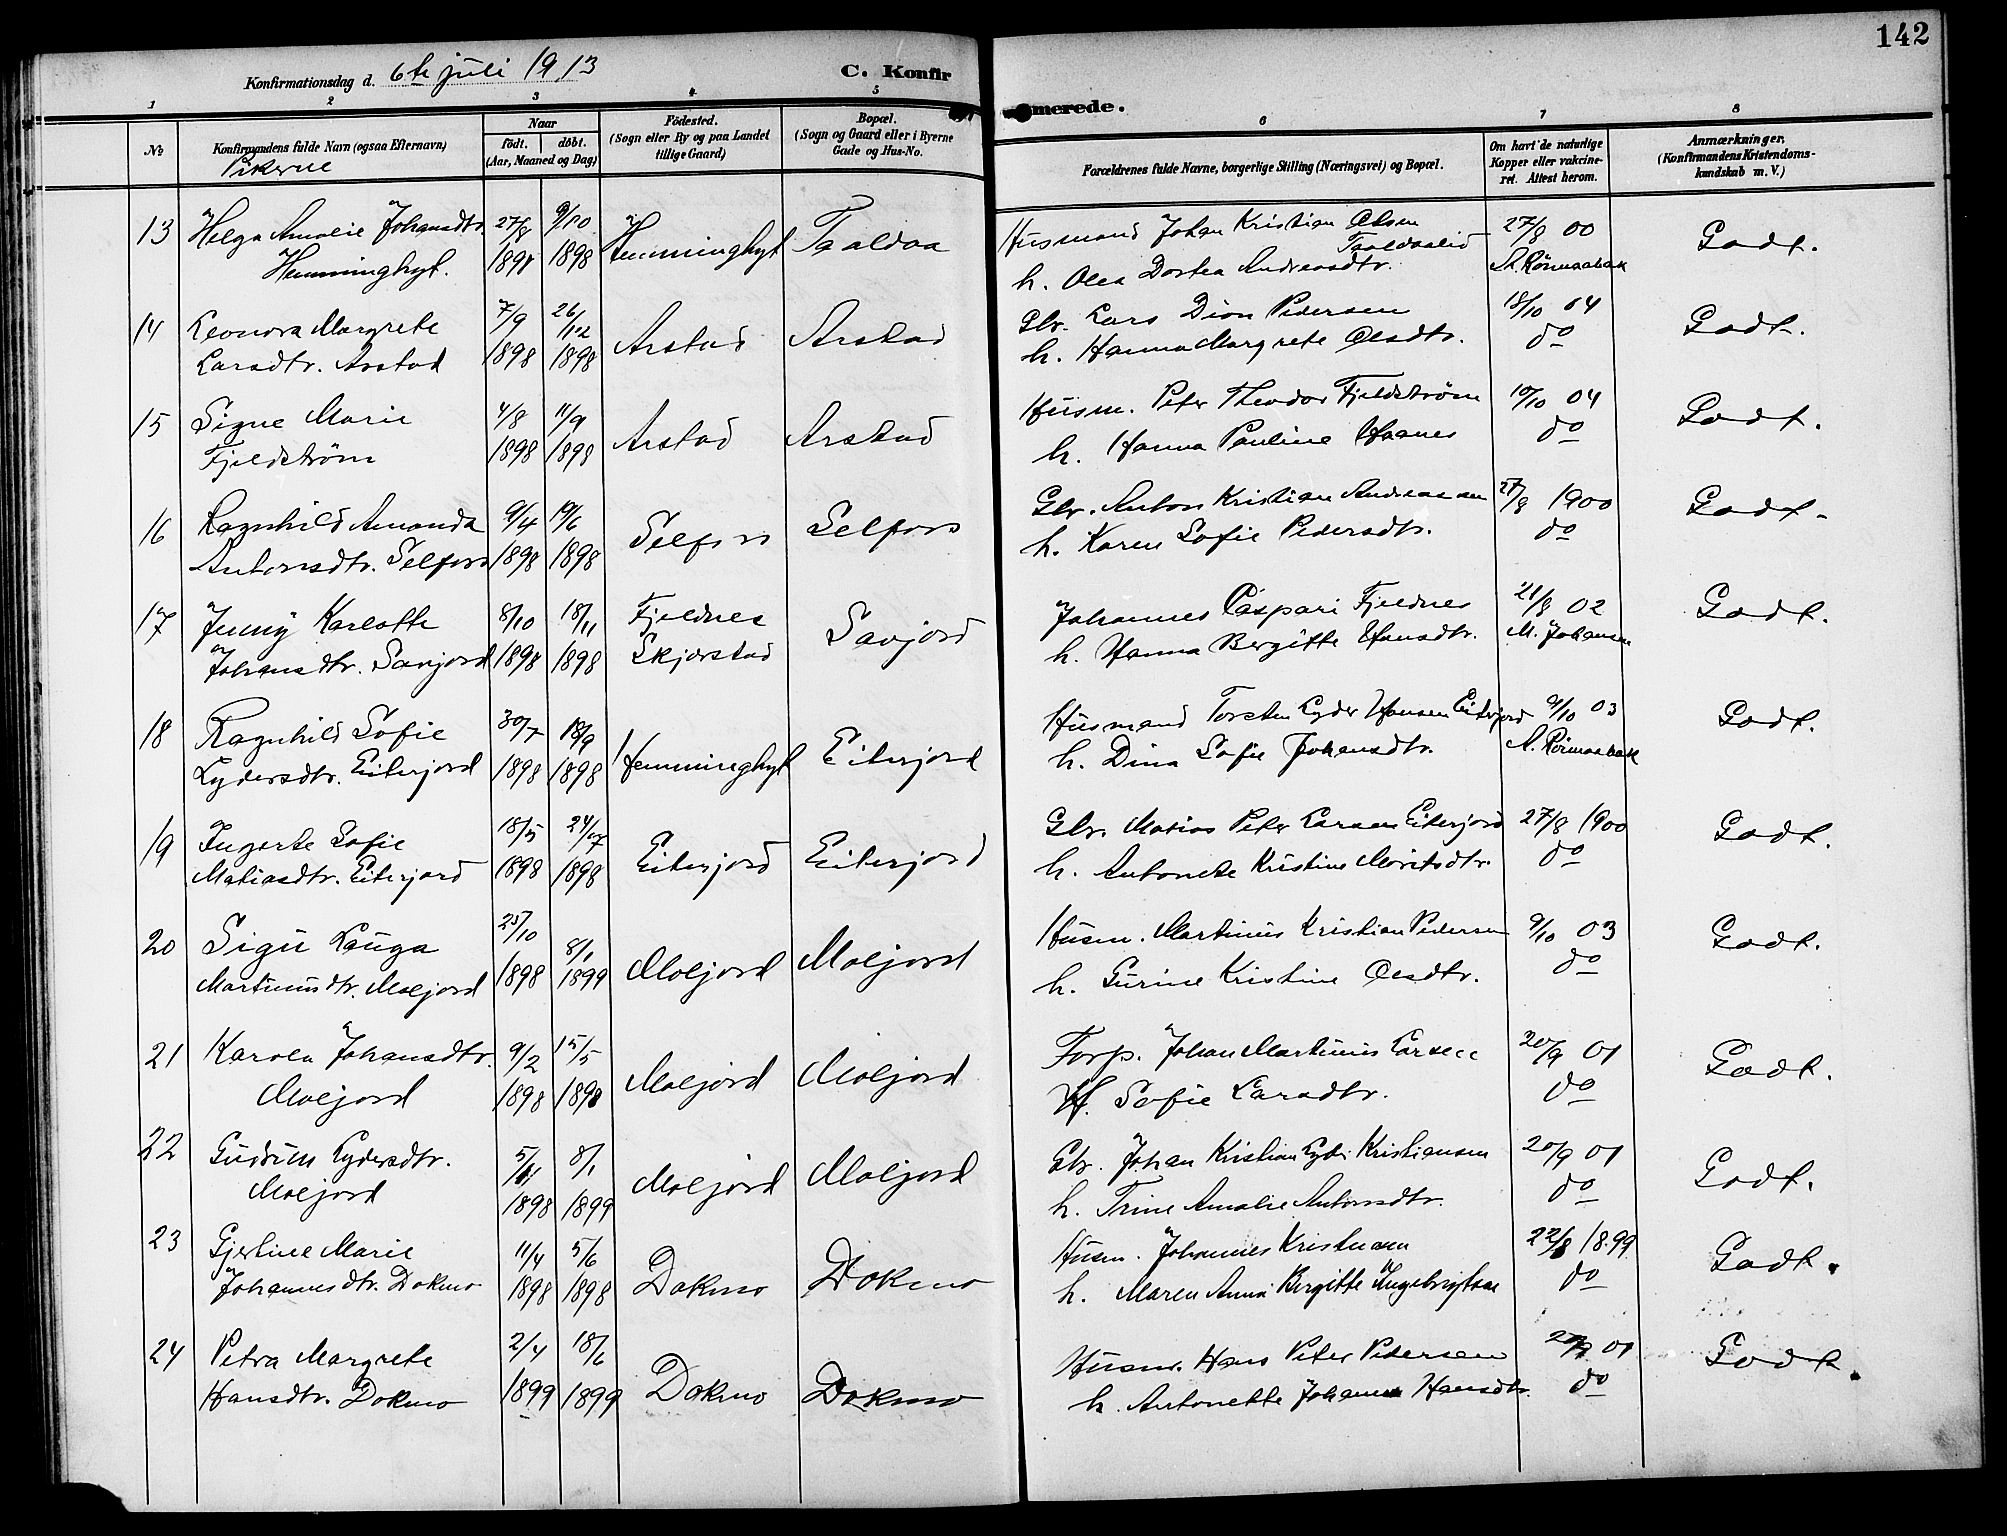 142
Konfirmationsdag d. 6te juli 1913
C. Konfirmerede.
1 2 3 4 5 6 7 8
№
Konfirmandens fulde Navn (ogsaa Efternavn)
Pikerne
Naar
født. døbt.
(Aar, Maaned og Dag)
Fødested.
(Sogn eller By og paa Landet
tillige Gaard)
Bopæl.
(Sogn og Gaard eller i Byerne
Gade og Hus-No.
Forældrenes fulde Navne, borgerlige Stilling (Næringsvei) og Bopæl.
Om havt de naturlige
Kopper eller vakcine-
ret. Attest herom.
Anmærkninger.
(Konfirmandens Kristendoms-
kundskab m. V.)
13 Helga Amalie Johansdtr. 27/8 9/10 Hemminghyt Taaldaa Husmand Johan Kristian Olsen Taaldaalid 27/8 00 Godt.
Hemminghyt. 1898 1898 h. Olea Dortea Andreasdtr. A. Rönnaabak
14 Leonora Margrete 7/9 26/12 Arstad Arstad Gbr. Lars Dion Pedersen 18/10 04 Godt.
Larsdtr. Arstad 1898 1898 h. Hanna Margrete Olsdtr. do
15 Signe Marie 4/8 11/9 Arstad Arstad Husm. Peter Theodor Fjeldström 10/10 04 Godt.
Fjeldström 1898 1898 h. Hanna Pauline Haanes do
16 Ragnhild Amanda 9/4 19/6 Selfors Selfors Gbr. Anton Kristian Andreassen 27/8 1900 Godt.
Antonsdtr. Selfors 1898 1898 h. Karen Sofie Pedersdtr. do
17 Jenny Karlotte 8/10 18/11 Fjeldnes Savjord Johannes Caspari Fjeldnes 21/8 02 Godt.
Johansdtr. Savjord 1898 1898 Skjerstad h. Hanna Bergitte Hansdtr. M. Johansen
18 Ragnhild Sofie 30/7 18/9 Hemminghyt Eiterjord Husmand Torsten Lyder Hansen Eiterjord 9/10 03 Godt.
Lydersdtr. Eiterjord 1898 1898 h. Dina Sofie Johansdtr. A. Rönnaabak
19 Ingerte Sofie 18/5 24/7 Eiterjord Eiterjord Gbr. Matias Peter Larsen Eiterjord 27/8 1900 Godt.
Matiasdtr. Eiterjord 1898 1898 h. Antonete Kristine Moritsdtr. do
20 Sigu Lauga 25/10 8/1 Moljord Moljord Husm. Martinus Kristian Pedersen 9/10 03 Godt.
Martinusdtr. Moljord 1898 1899 h. Gurine Kristine Olsdtr. do
21 Karola Johansdtr. 9/2 15/5 Moljord Moljord Forp. Johan Martinus Larsen 20/9 01 Godt.
Moljord 1898 1898 H. Sofie Larsdtr. do
22 Gudrun Lydersdtr. 5/11 8/1 Moljord Moljord Gbr. Johan Kristian Lyder Kristiansen 20/9 01 Godt.
Moljord 1898 1899 h. Trine Amalie Antonsdtr. do
23 Gjertine Marie 11/4 5/6 Dokmo Dokmo Husm. Johannes Kristensen 22/8 1899 Godt.
Johannesdtr. Dokmo 1898 1898 h. Maren Anna Bergitte Ingebrigtsen do
24 Petra Margrete 2/4 18/6 Dokmo Dokmo Husm. Hans Peter Pedersen 20/9 01 Godt.
Hansdtr. Dokmo 1899 1899 h. Antonette Johanna Hansdtr. do